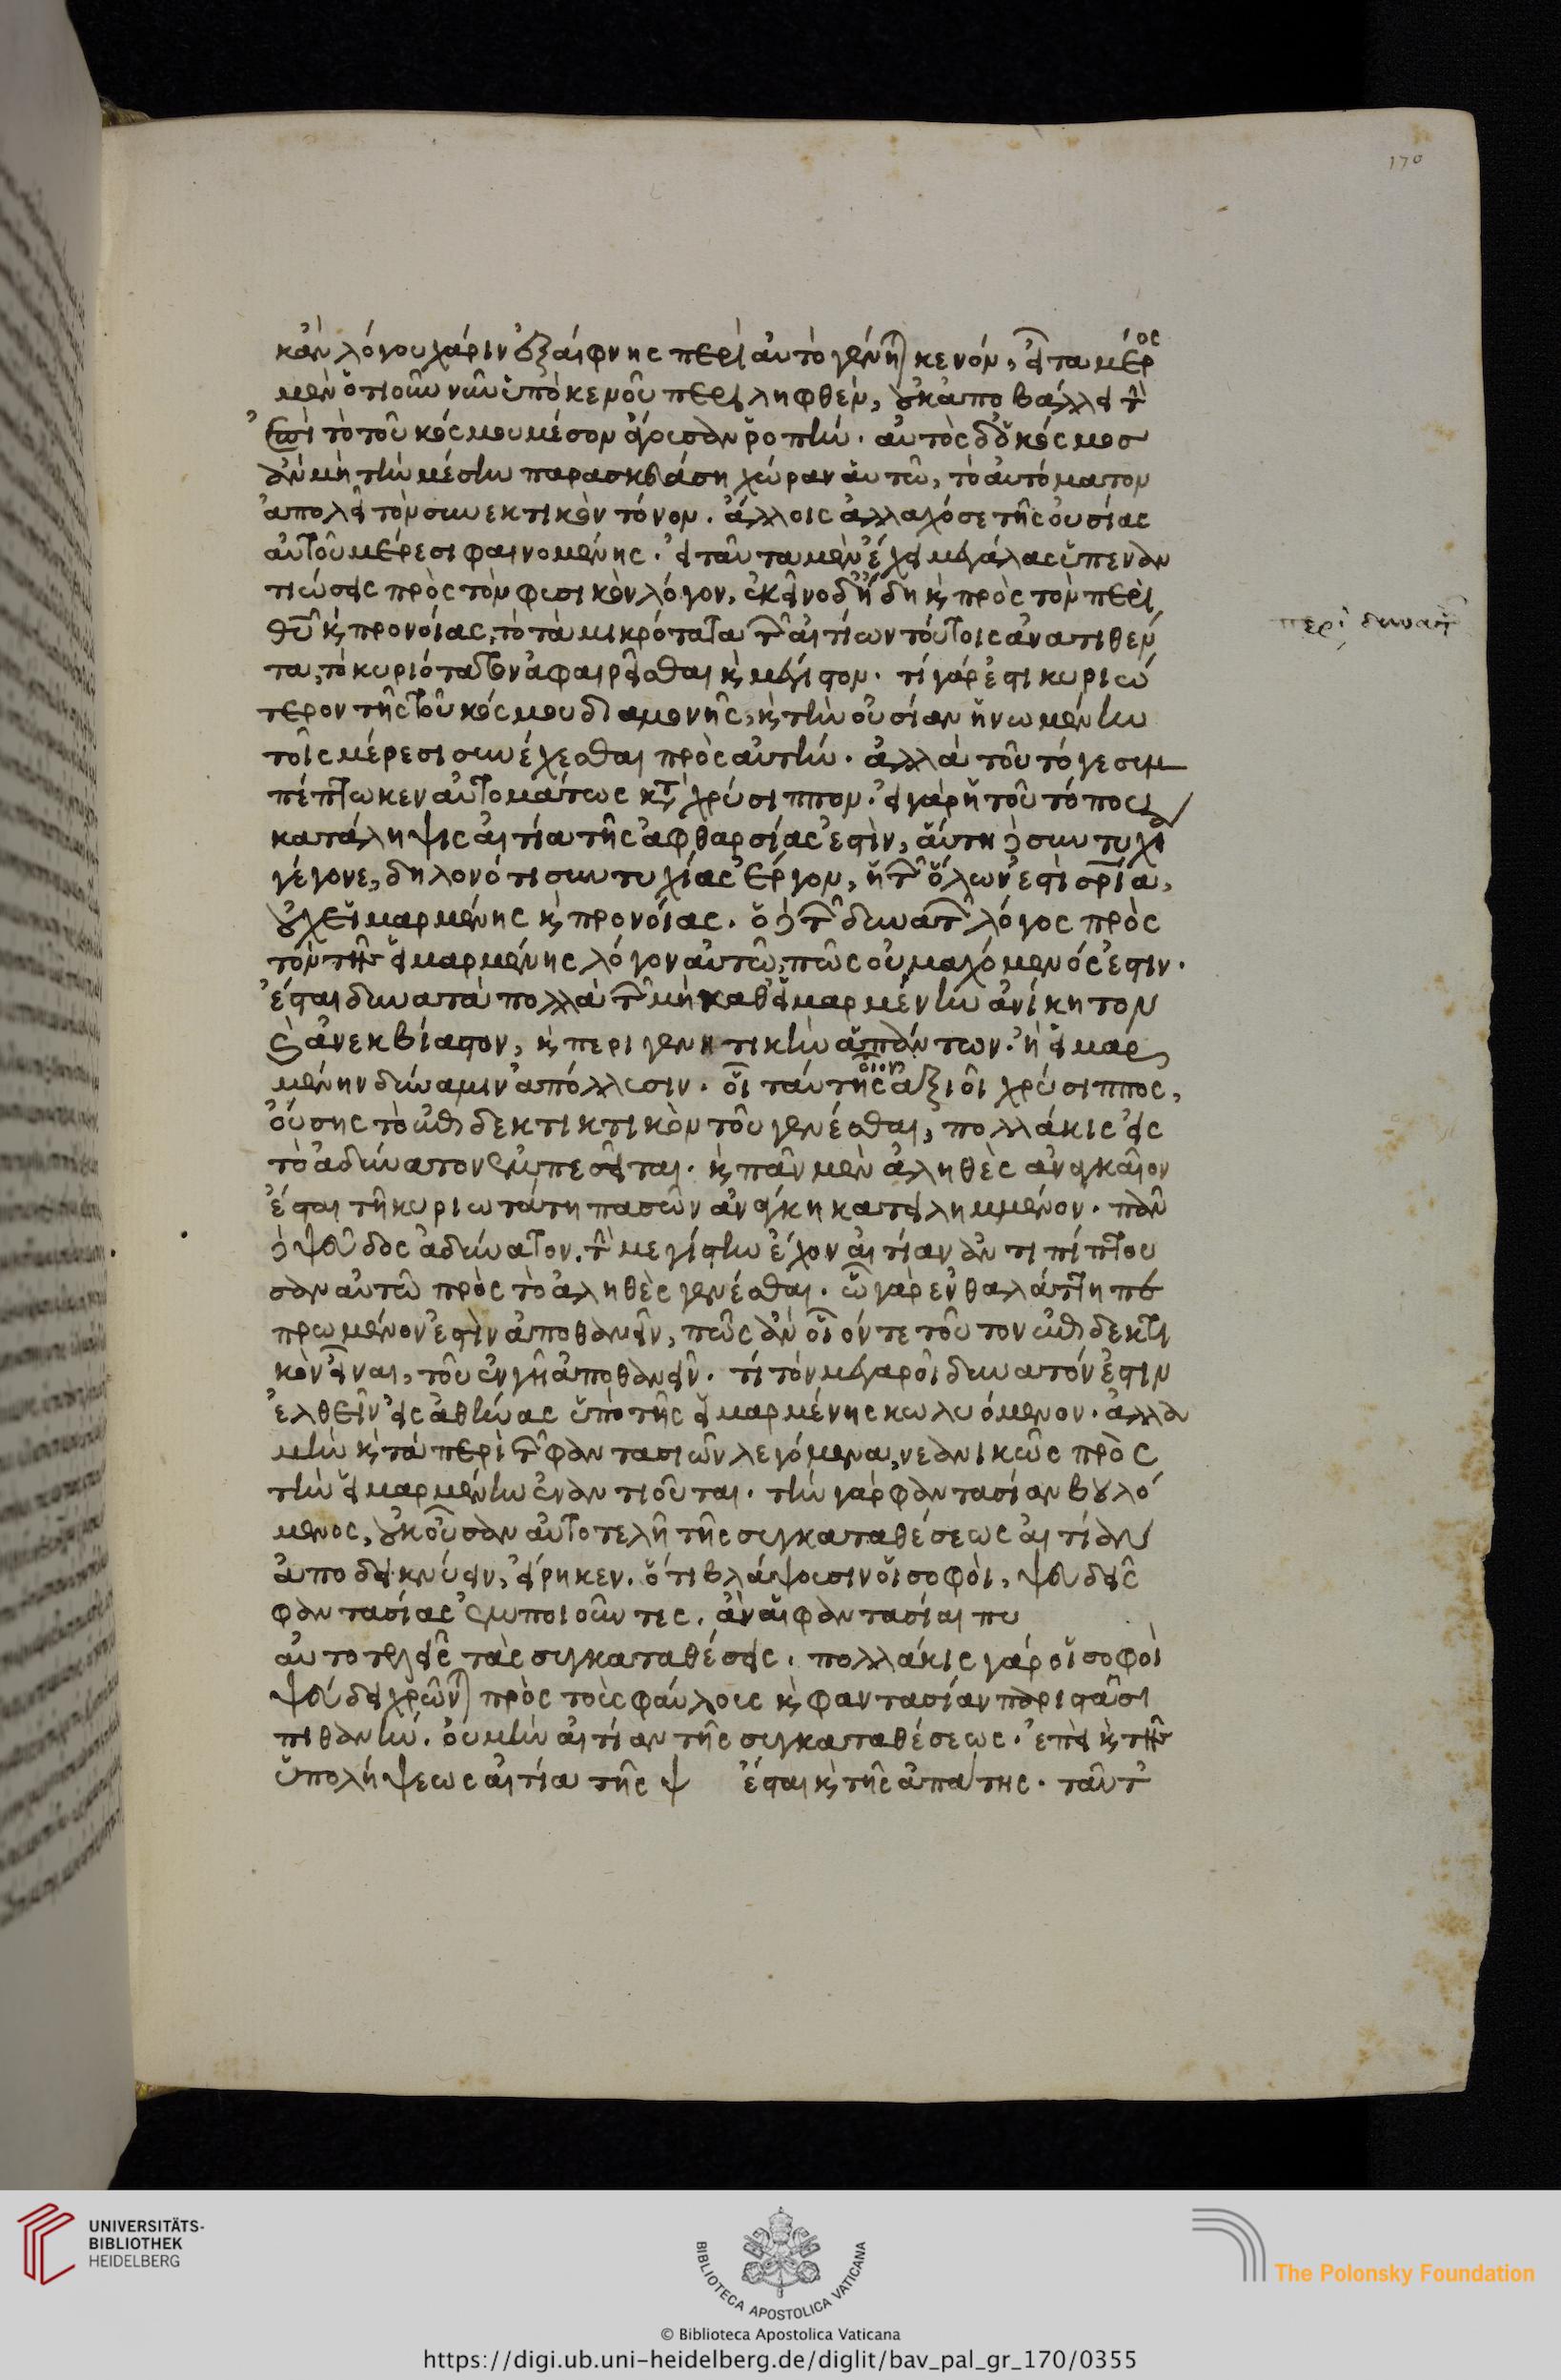 170
κἂν λόγου χάριν ἐξαίφνης περὶ αὐτὸ γένηται κενόν, εἶτα μέρος
μὲν ὁτιοῦν νῦν ὑπὸ κενοῦ περιληφθὲν, οὐκ ἀποβάλλει τὴν
ἐπὶ τὸ τοῦ κόσμου μέσον ἄγουσαν ῥοπήν. αὐτὸς δ' ὁ κόσμος
ἂν μὴ τὴν μέσην παρασκευάση χώραν αὐτῶ, τὸ αὐτόματον
ἀπολεῖ τὸν συνεκτικὸν τόνον. ἄλλοις ἀλλαχόσε τῆς οὐσίας
αὐτοῦ μέρεσι φαινομένης. εἰ ταῦτα μὲν ἔχει μεγάλας ὑπεναν
τιώσεις πρὸς τὸν φυσικὸν λόγον, ἐκεῖνο δ' ἤδη καὶ πρὸς τὸν περὶ
θεοῦ καὶ προνοίας, τὸ τὰ μικρότατα τῶν αἰτίων τούτοις ἀνατιθέν
τα, τὸ κυριότατον ἀφαιρεῖσθαι καὶ μέγιστον. τί γάρ ἐστι κυριώ
τερον τῆς τοῦ κόσμου διαμονῆς, καὶ τὴν οὐσίαν ἡνωμένην
τοῖς μέρεσι συνέχεσθαι πρὸς αὐτήν. ἀλλὰ τοῦτό γε συμ
πέπτωκεν αὐτομάτως κατὰ χρύσιππον. εἰ γὰρ ἡ τοῦ τόπου
κατάληψις αἰτία τῆς ἀφθαρσίας ἐστὶν, αὕτη δὲ συντυχία
γέγονε, δηλονότι συντυχίας ἔργον, ἡ τῶν ὅλων ἐστὶ σωτηρία,
οὐχ εἱμαρμένης καὶ προνοίας. ὁ δὲ τῶν δυνατῶν λόγος πρὸς
τὸν τῆς εἱμαρμένης λόγον αὐτῶ, πῶς οὐ μαχόμενός ἐστιν.
ἔσται δυνατὰ πολλὰ τῶν μὴ καθ' εἱμαρμένην ἀνίκητον
καὶ ἀνεκβίαστον, καὶ περιγενητικὴν ἁπάντων. ἢ εἱμαρ
μένην δύναμιν ἀπόλλυσιν. οἷ ταύτης οἵαν ἀξιοῖ χρύσιππος,
οὔσης τὸ ἐπιδεκτικτικὸν τοῦ γενέσθαι, πολλάκις εἰς
τὸ ἀδύνατον ἐμπεσεῖται. καὶ πᾶν μὲν ἀληθὲς ἀναγκαῖον
ἔσται τῆ κυριωτάτη πασῶν ἀνάγκη κατειλημμένον. πᾶν
δὲ ψεῦδος ἀδύνατον. τὴν μεγίστην ἔχον αἰτίαν ἀντιπίπτου
σαν αὐτῶ πρὸς τὸ ἀληθὲς γενέσθαι. ὧ γὰρ ἐν θαλάττη πε
πρωμένον ἐστὶν ἀποθανεῖν, πῶς ἂν οἷόν τε τοῦτον ἐπιδεκτι
κὸν εἶναι, τοῦ ἐν γῆ ἀποθανεῖν. τί τὸν μεγαροῖ δυνατόν ἐστιν
ἐλθεῖν εἰς ἀθήνας ὑπὸ τῆς εἱμαρμένης κωλυόμενον. ἀλλὰ
μὴν καὶ τὰ περὶ τῶν φαντασιῶν λεγόμενα, νεανικῶς πρὸς
τὴν εἱμαρμένην ἐναντιοῦται. τὴν γὰρ φαντασίαν βουλό
μενος, οὐκ οὖσαν αὐτοτελῆ τῆς συγκαταθέσεως αἰτίαν
ἀποδεικνύειν, εἴρηκεν. ὅτι βλάψουσιν οἱ σοφοὶ, ψευδεῖς
φαντασίας ἐμποιοῦντες. ἂν αἱ φαντασίαι πυ
αὐτοτελεῖς τὰς συγκαταθέσεις. πολλάκις γὰρ οἱ σοφοὶ
ψεύδει χρῶνται πρὸς τοὺς φαύλους καὶ φαντασίαν παριστᾶσι
πιθανήν. οὐ μὴν αἰτίαν τῆς συγκαταθέσεως. ἐπεὶ καὶ τῆς
ὑπολήψεως αἰτία τῆς ψ ἔσται καὶ τῆς ἀπάτης. ταῦτ'
περὶ δυνατῶν
UNIVERSITÄTS-
BIBLIOTHEK
HEIDELBERG
BIBLIOTECA APOSTOLICA VATICANA
The Polonsky Foundation
© Biblioteca Apostolica Vaticana
https://digi.ub.uni-heidelberg.de/diglit/bav_pal_gr_170/0355